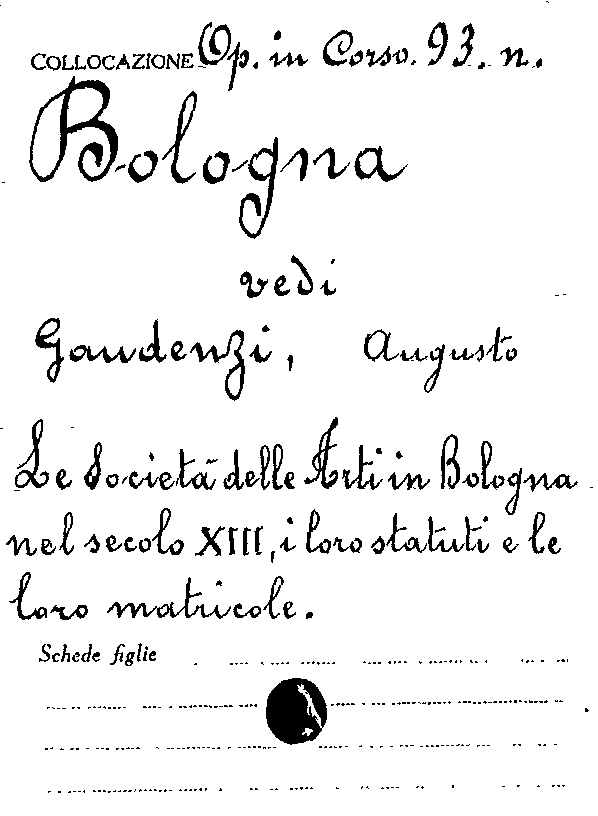 COLLOCAZIONE Op. in Corso. 93. n.
Bologna
vedi
Gaudenzi, Augusto
Le Società delle Arti in Bologna
nel secolo XIII, i loro statuti e le
loro matricole.
Schede figlie